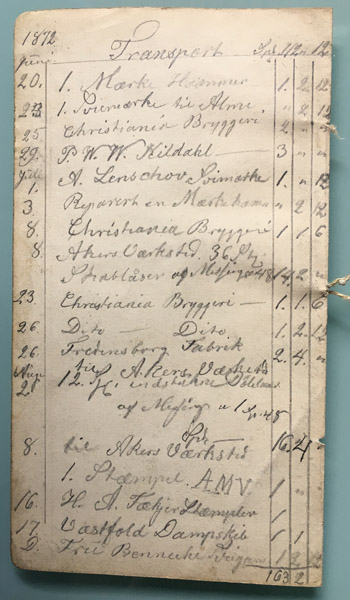 1872
Transport — Spd 12 " 12
Juni
20. 1. Mærke Hammer 1. 2. 12
23 1. Sviemærke til Alme. " 2 12
25 Christiania Bryggeri 2 " "
29. P. W. W. Kildahl — 3 " "
Juli
1. A. Lenschov Sviemærke 1. " 12
3. Reparert en Mærkehamm " 2 12
8. Christiania Bryggeri 1 1 6
8. Akers Værksted. 36 Stk.
Skablåser af Messing 48 14 2 "
23. Christiania Bryggeri — 1. 1. 6
26. Dito — Dito 1. 2. 12
26. Fredensborg Fabrik 2. 4. "
Aug til Akers Værksted
2 12. St. indstukne
af Messing a 1 Sp. 48
Spd. 16. 4 "
8. til Akers Værksted
1. Stæmpel. AMV. 1 " "
16. H. A. Stæmpler 1
17. Vestfold Dampskib 1 1
D. Bennecke
163 2